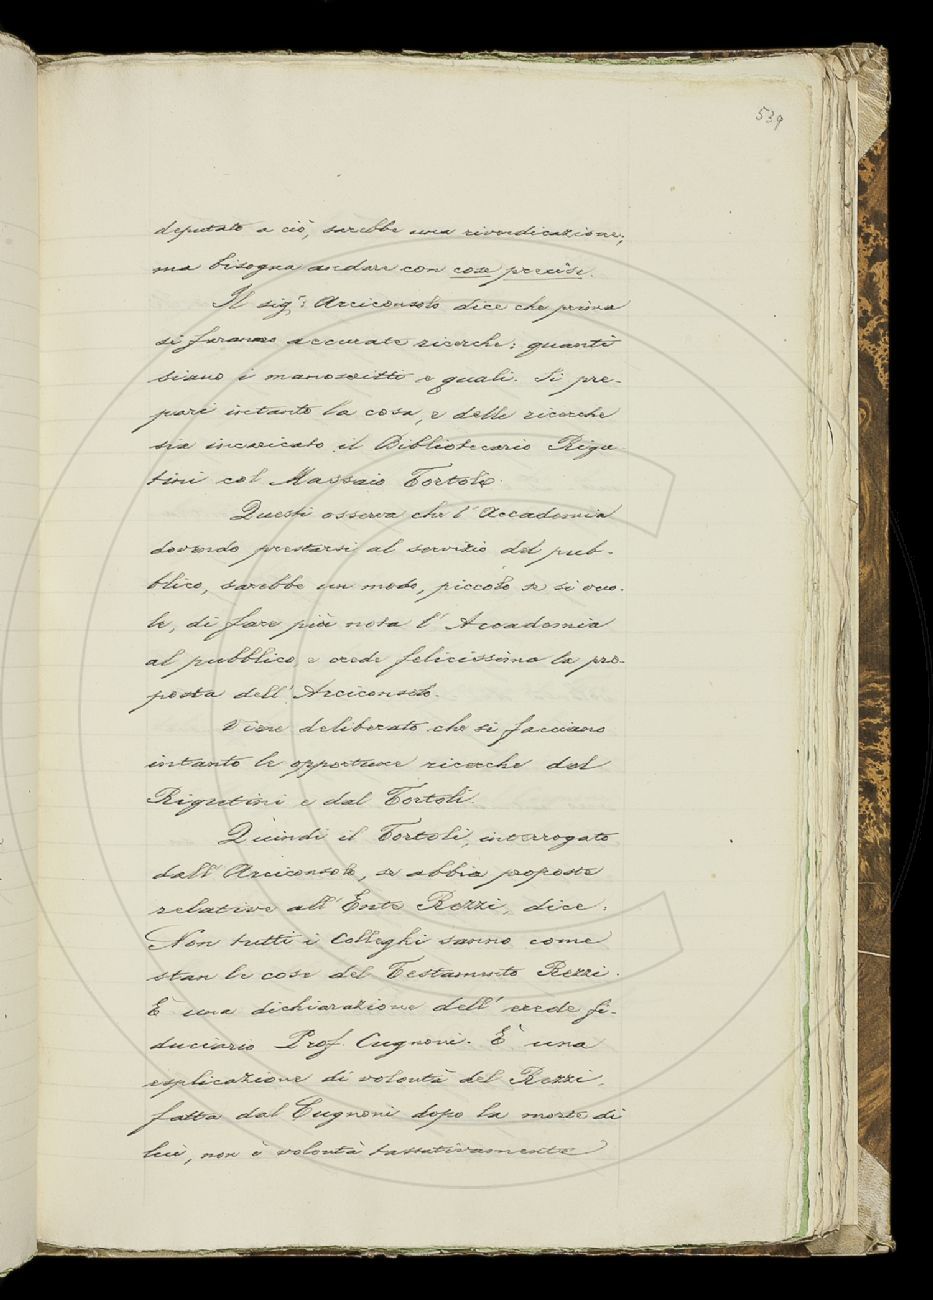 539
deputato a ciò, sarebbe una rivendicazione;
ma bisogna andare con cose precise.
Il sigr. Arciconsolo dice che prima
si faranno accurate ricerche: quanti
siano i manoscritti e quali. Si pre-
pari intanto la cosa, e delle ricerche
sia incaricato il Bibliotecario Rigu-
tini col Massaio Tortoli.
Questi osserva che l'Accademia
dovendo prestarsi al servizio del pub-
blico, sarebbe un modo, piccolo se si vuo-
le, di fare più nota l'Accademia
al pubblico, e crede felicissima la pro-
posta dell'Arciconsolo.
Viene deliberato che si facciano
intanto le opportune ricerche dal
Rigutini e dal Tortoli.
Quindi il Tortoli, interrogato
dall'Arciconsolo, se abbia proposte
relative all'Ente Rezzi, dice:
Non tutti i Colleghi sanno come
stan le cose del Testamento Rezzi.
È una dichiarazione dell'erede fi-
duciario Prof. Cugnoni. È una
esplicazione di volontà del Rezzi,
fatta dal Cugnoni dopo la morte di
lui, non è volontà tassativamente